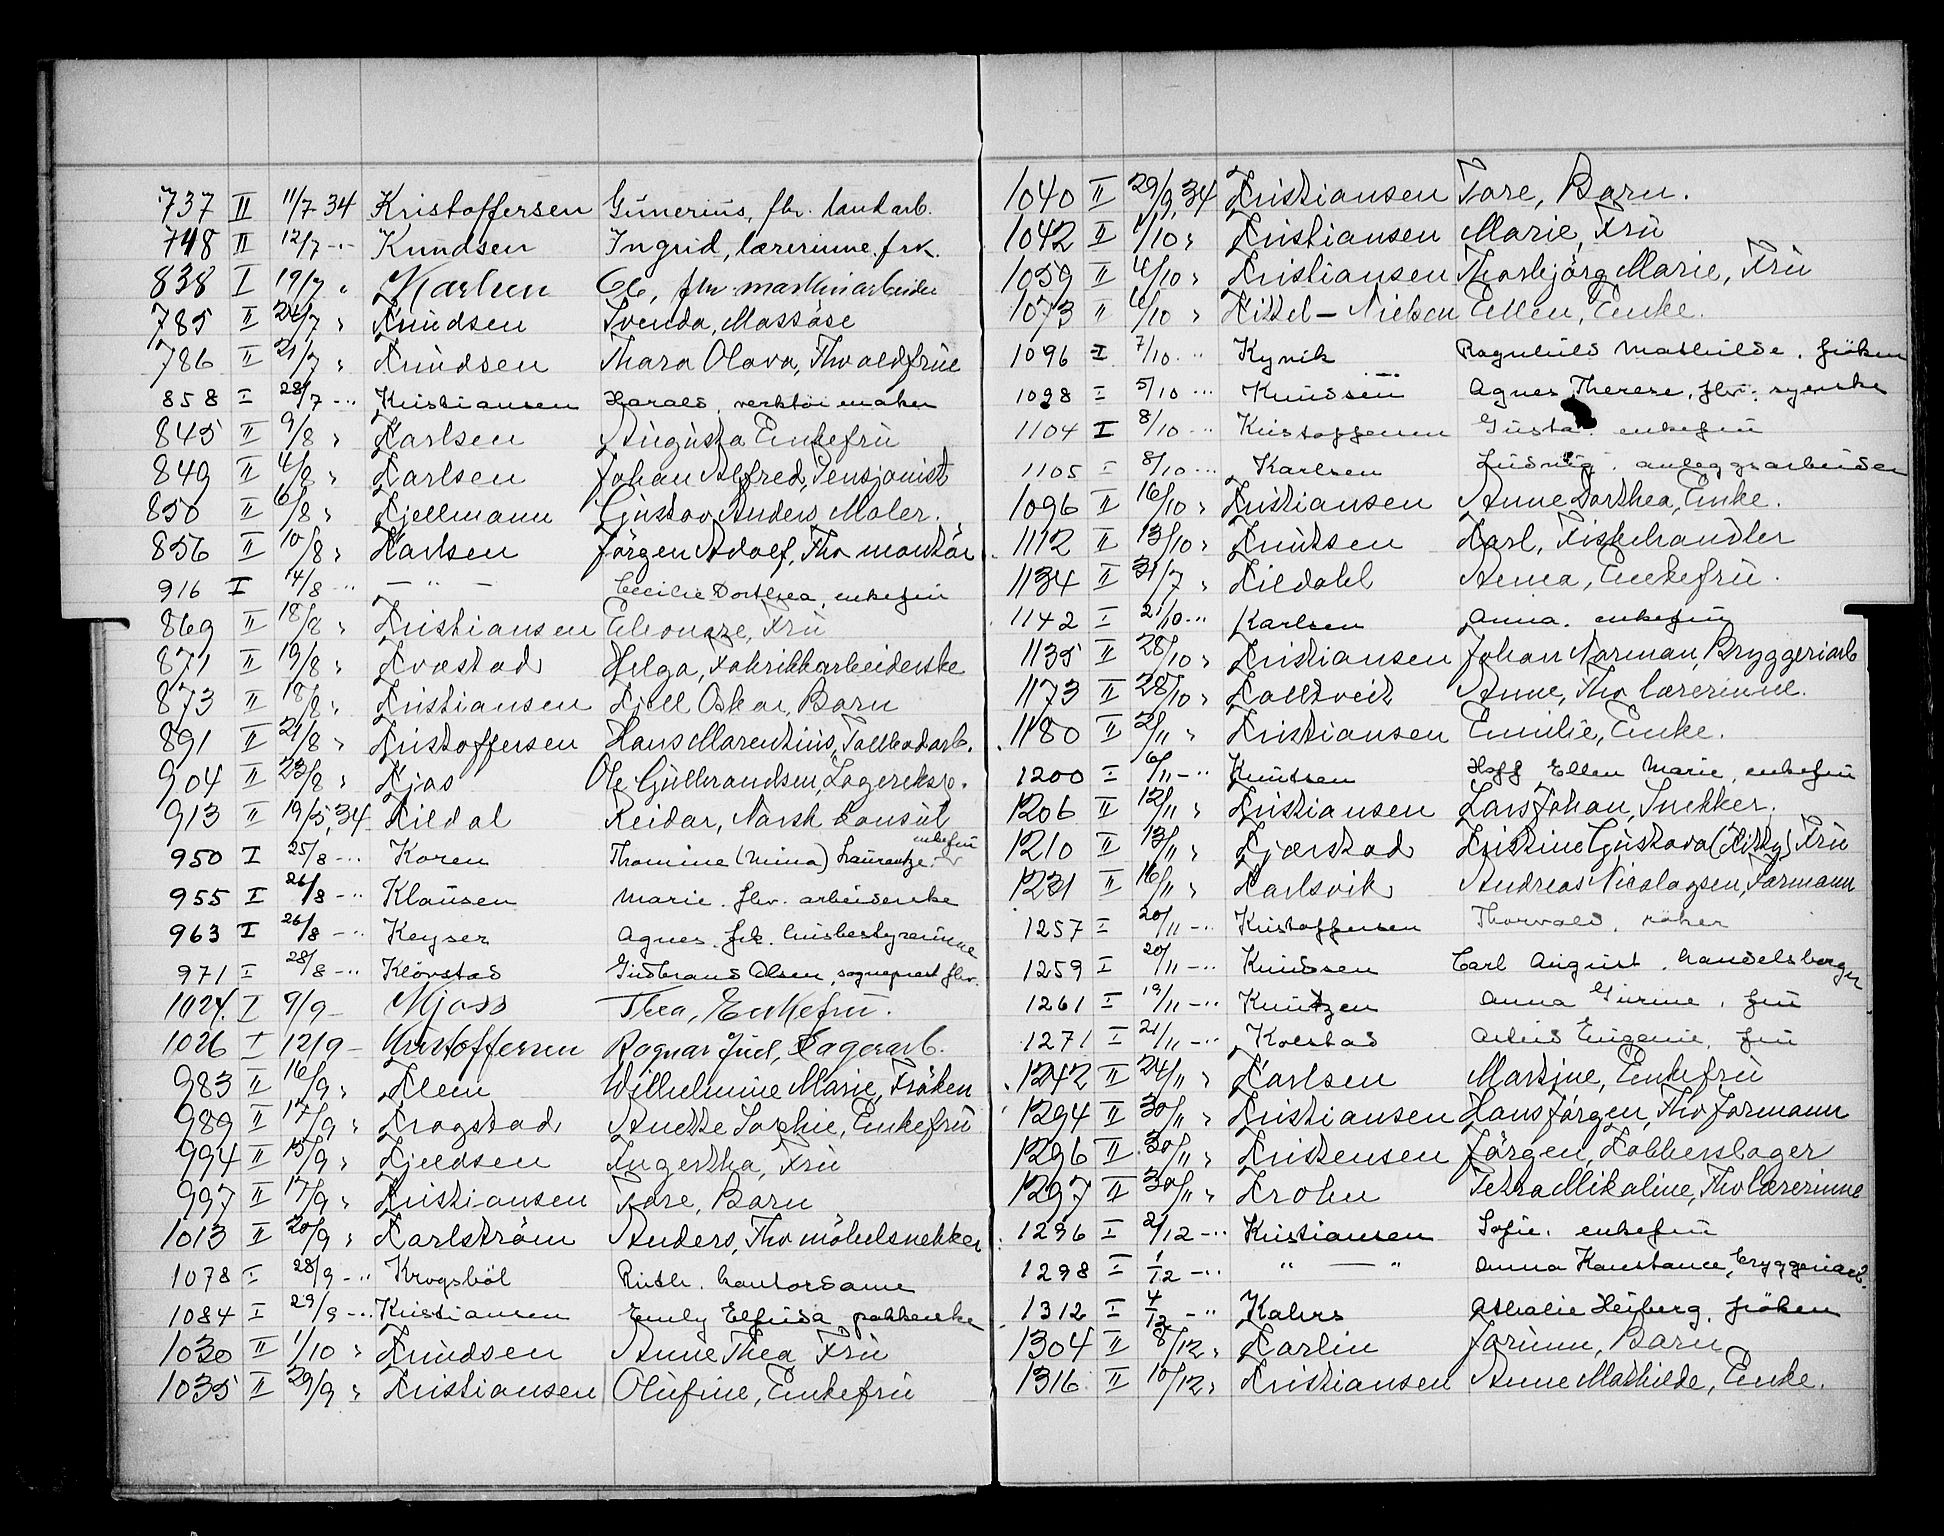 737 II 11/7 34 Kristoffersen Gunerius, fhv. landarb.
748 II 12/7 -"- Knudsen Ingrid, lærerinne frk.
838 I 19/7 " Karlsen Ole, fhv. maskinarbeider
785 II 24/7 " Knudsen Svenda, Massøse
786 II 21/7 " Knudsen Thora Olava, Thvaldfrue
858 I 28/7 -"- Kristiansen Harald, verktøimaker
845 II 9/8 " Karlsen Augusta Enkefru
849 II 4/8 " Karlsen Johan Alfred, Pensjonist
850 II 6/8 " Kjellmann Gustav Anders Maler.
856 II 10/8 " Karlsen Jörgen Adolf, Fhv montör
916 I 14/8 -"- — " — Cecilie Dorthea, enkefru
869 II 18/8 " Kristiansen Eleonore, Fru
871 II 19/8 " Kvæstad Helga, Fabrikkarbeiderske
873 II 18/8 " Kristiansen Kjell Oskar, Barn
891 II 21/8 " Kristoffersen Hans Marentius, Tollbodarb.
904 II 23/8 " Kjos Ole Gulbrandsen, Lagereksp.
913 II 19/5, 34 Kildal Reidar, Norsk konsul
950 I 25/8 -"- Koren Thomine (Mina) Laurentze. enkefru
955 I 26/8 -"- Klausen Marie. fhv. arbeiderske
963 I 26/8 -"- Keyser Agnes. frk. husbestyrerinne
971 I 28/8 -"- Klövstad Gudbrand Olsen, sogneprest fhv.
1024. I 9/9 - Kjoss Thea, Enkefru.
1026 I 12/9 - Kristoffersen Ragnar Juel, Lagerarb.
983 II 16/9 " Klem Wilhelmine Marie, Fröken
989 II 17/9 " Krogstad Anette Sophie, Enkefru
994 II 15/9 " Kjeldsen Ingertha, Fru
997 II 17/9 " Kristiansen Tore, Barn
1013 II 20/9 " Karlström Anders, Fhv möbelsnekker
1078 I 28/9 -"- Krogsböl Ruth. kontordame
1084 I 29/9 -"- Kristiansen Emly Elfrida pakkerske
1030 II 1/10 " Knudsen Anne Thea Fru
1035 II 29/9 " Kristiansen Olufine, Enkefru
1040 II 29/9, 34 Kristiansen Tore, Barn.
1042 II 1/10 " Kristiansen Marie, Fru
1059 II 4/10 " Kristiansen Thorbjörg Marie, Fru
1073 II 6/10 " Kittel-Nielsen Ellen, Enke.
1096 I 7/10 -"- Kynik Ragnhild Mathilde. fröken
1098 I 5/10 -"- Knudsen Agnes Therese, fhv. syerske
1104 I 8/10 -"- Kristoffersen Gusta. enkefru
1105 I 8/10 -"- Karlsen Ludvig. anleggsarbeider
1096 II 16/10 " Kristiansen Anne Dorthea, Enke.
1112 II 13/10 " Knutsen Karl, Fiskehandler
1134 II 31/7 " Kildahl Anna, Enkefru.
1142 I 21/10 -"- Karlsen Anna. enkefru
1135 II 28/10 " Kristiansen Johan Norman, Bryggeriarb
1173 II 28/10 " Kalltveit Anne, Fhv lærerinne.
1180 II 2/11 " Kristiansen Emilie, Enke.
1200 I 6/11 -"- Knutsen Hoff Ellen Marie, enkefru
1206 II 12/11 " Kristiansen Lars Johan, Snekker.
1210 II 13/11 " Kjærstad Kristine Gustava (Kitty) Fru
1231 II 16/11 " Karlsvik Andreas Nicolaysen, Formann
1257 I 20/11 -"- Kristoffersen Thorvald, röker
1259 I 20/11 -"- Knudsen Carl August. handelsborger
1261 I 19/11 -"- Knutzen Anna Gurine, fru
1271 I 21/11 -"- Kolstad Astrid Eugenie, fru
1242 II 24/11 " Karlsen Martine, Enkefru
1294 II 30/11 " Kristiansen Hans Jörgen, Fhv formann
1296 II 30/11 " Kristensen Jörgen, Kobberslager
1297 II 30/11 " Krohn Petra Mikaline, Fhv lærerinne
1296 I 2/12 -"- Kristiansen Sofie. enkefru
1298 I 1/12 -"- " — " Anna Konstance, bryggeriarb.
1312 I 4/12 -"- Kahrs Athalie Heiberg, fröken
1304 II 8/12 " Karlin Jorunn, Barn
1316 II 10/12 " Kristiansen Anne Mathilde, Enke.